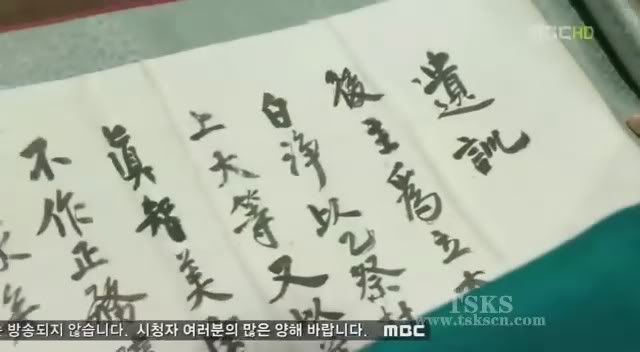 MBC HD
遺訓
後主為立
白淨以乙祭
上大等又以
眞智美
不作正務
방송되지 않습니다. 시청자 여러분의 많은 양해 바랍니다. MBC
TSKS
www.tskscn.com